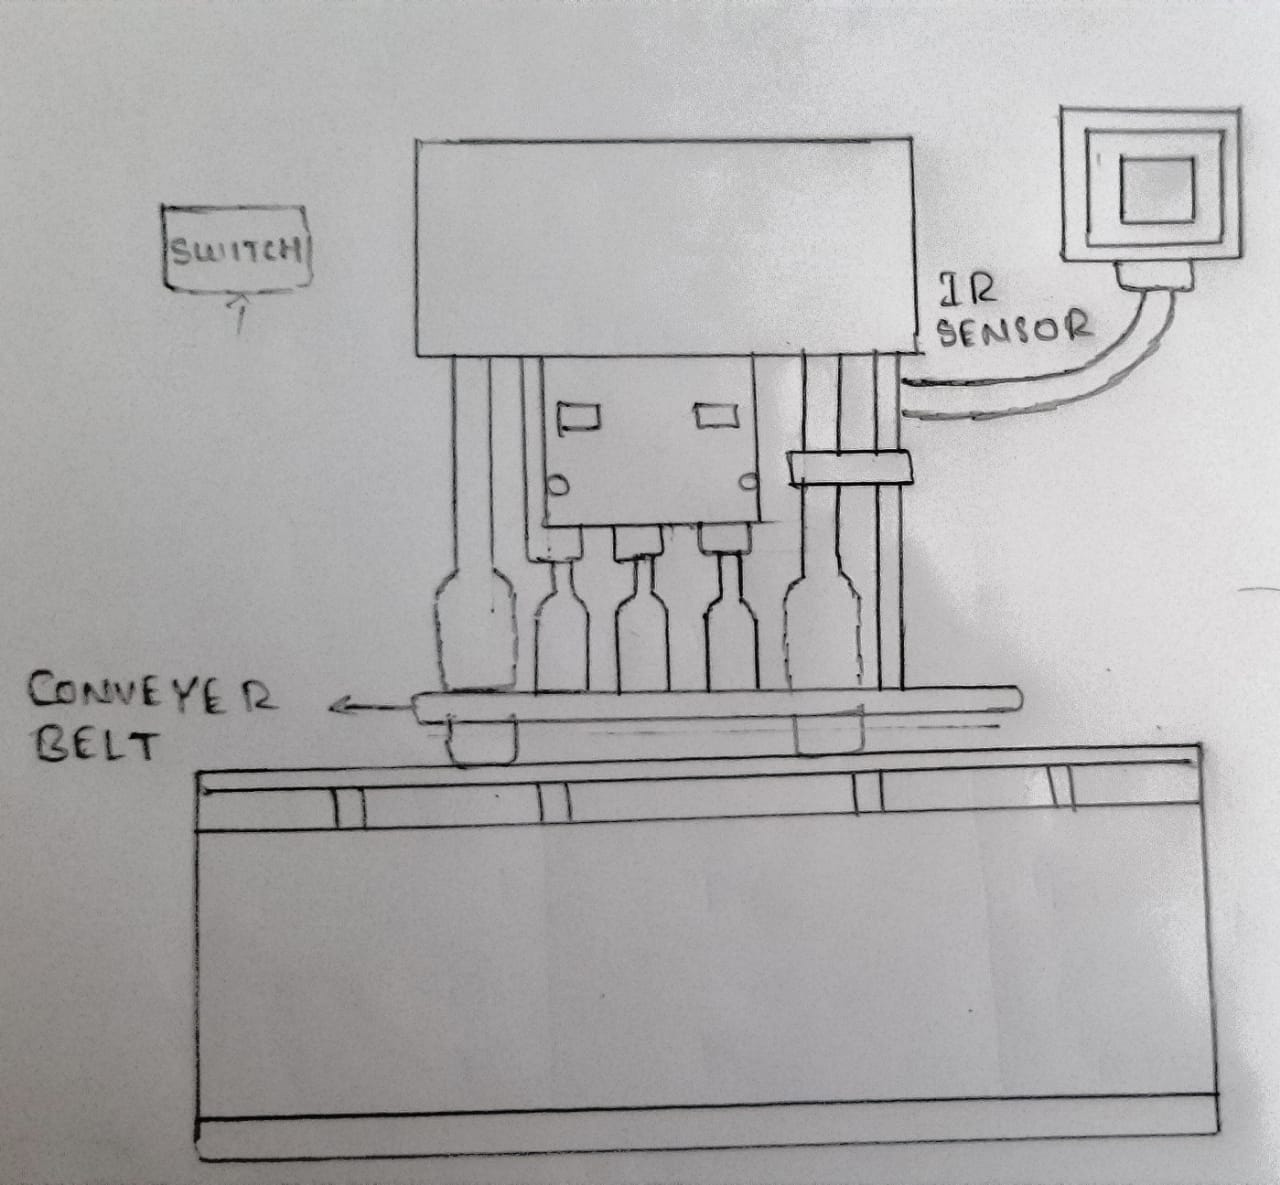 SWITCH
IR
SENSOR
CONVEYER
BELT